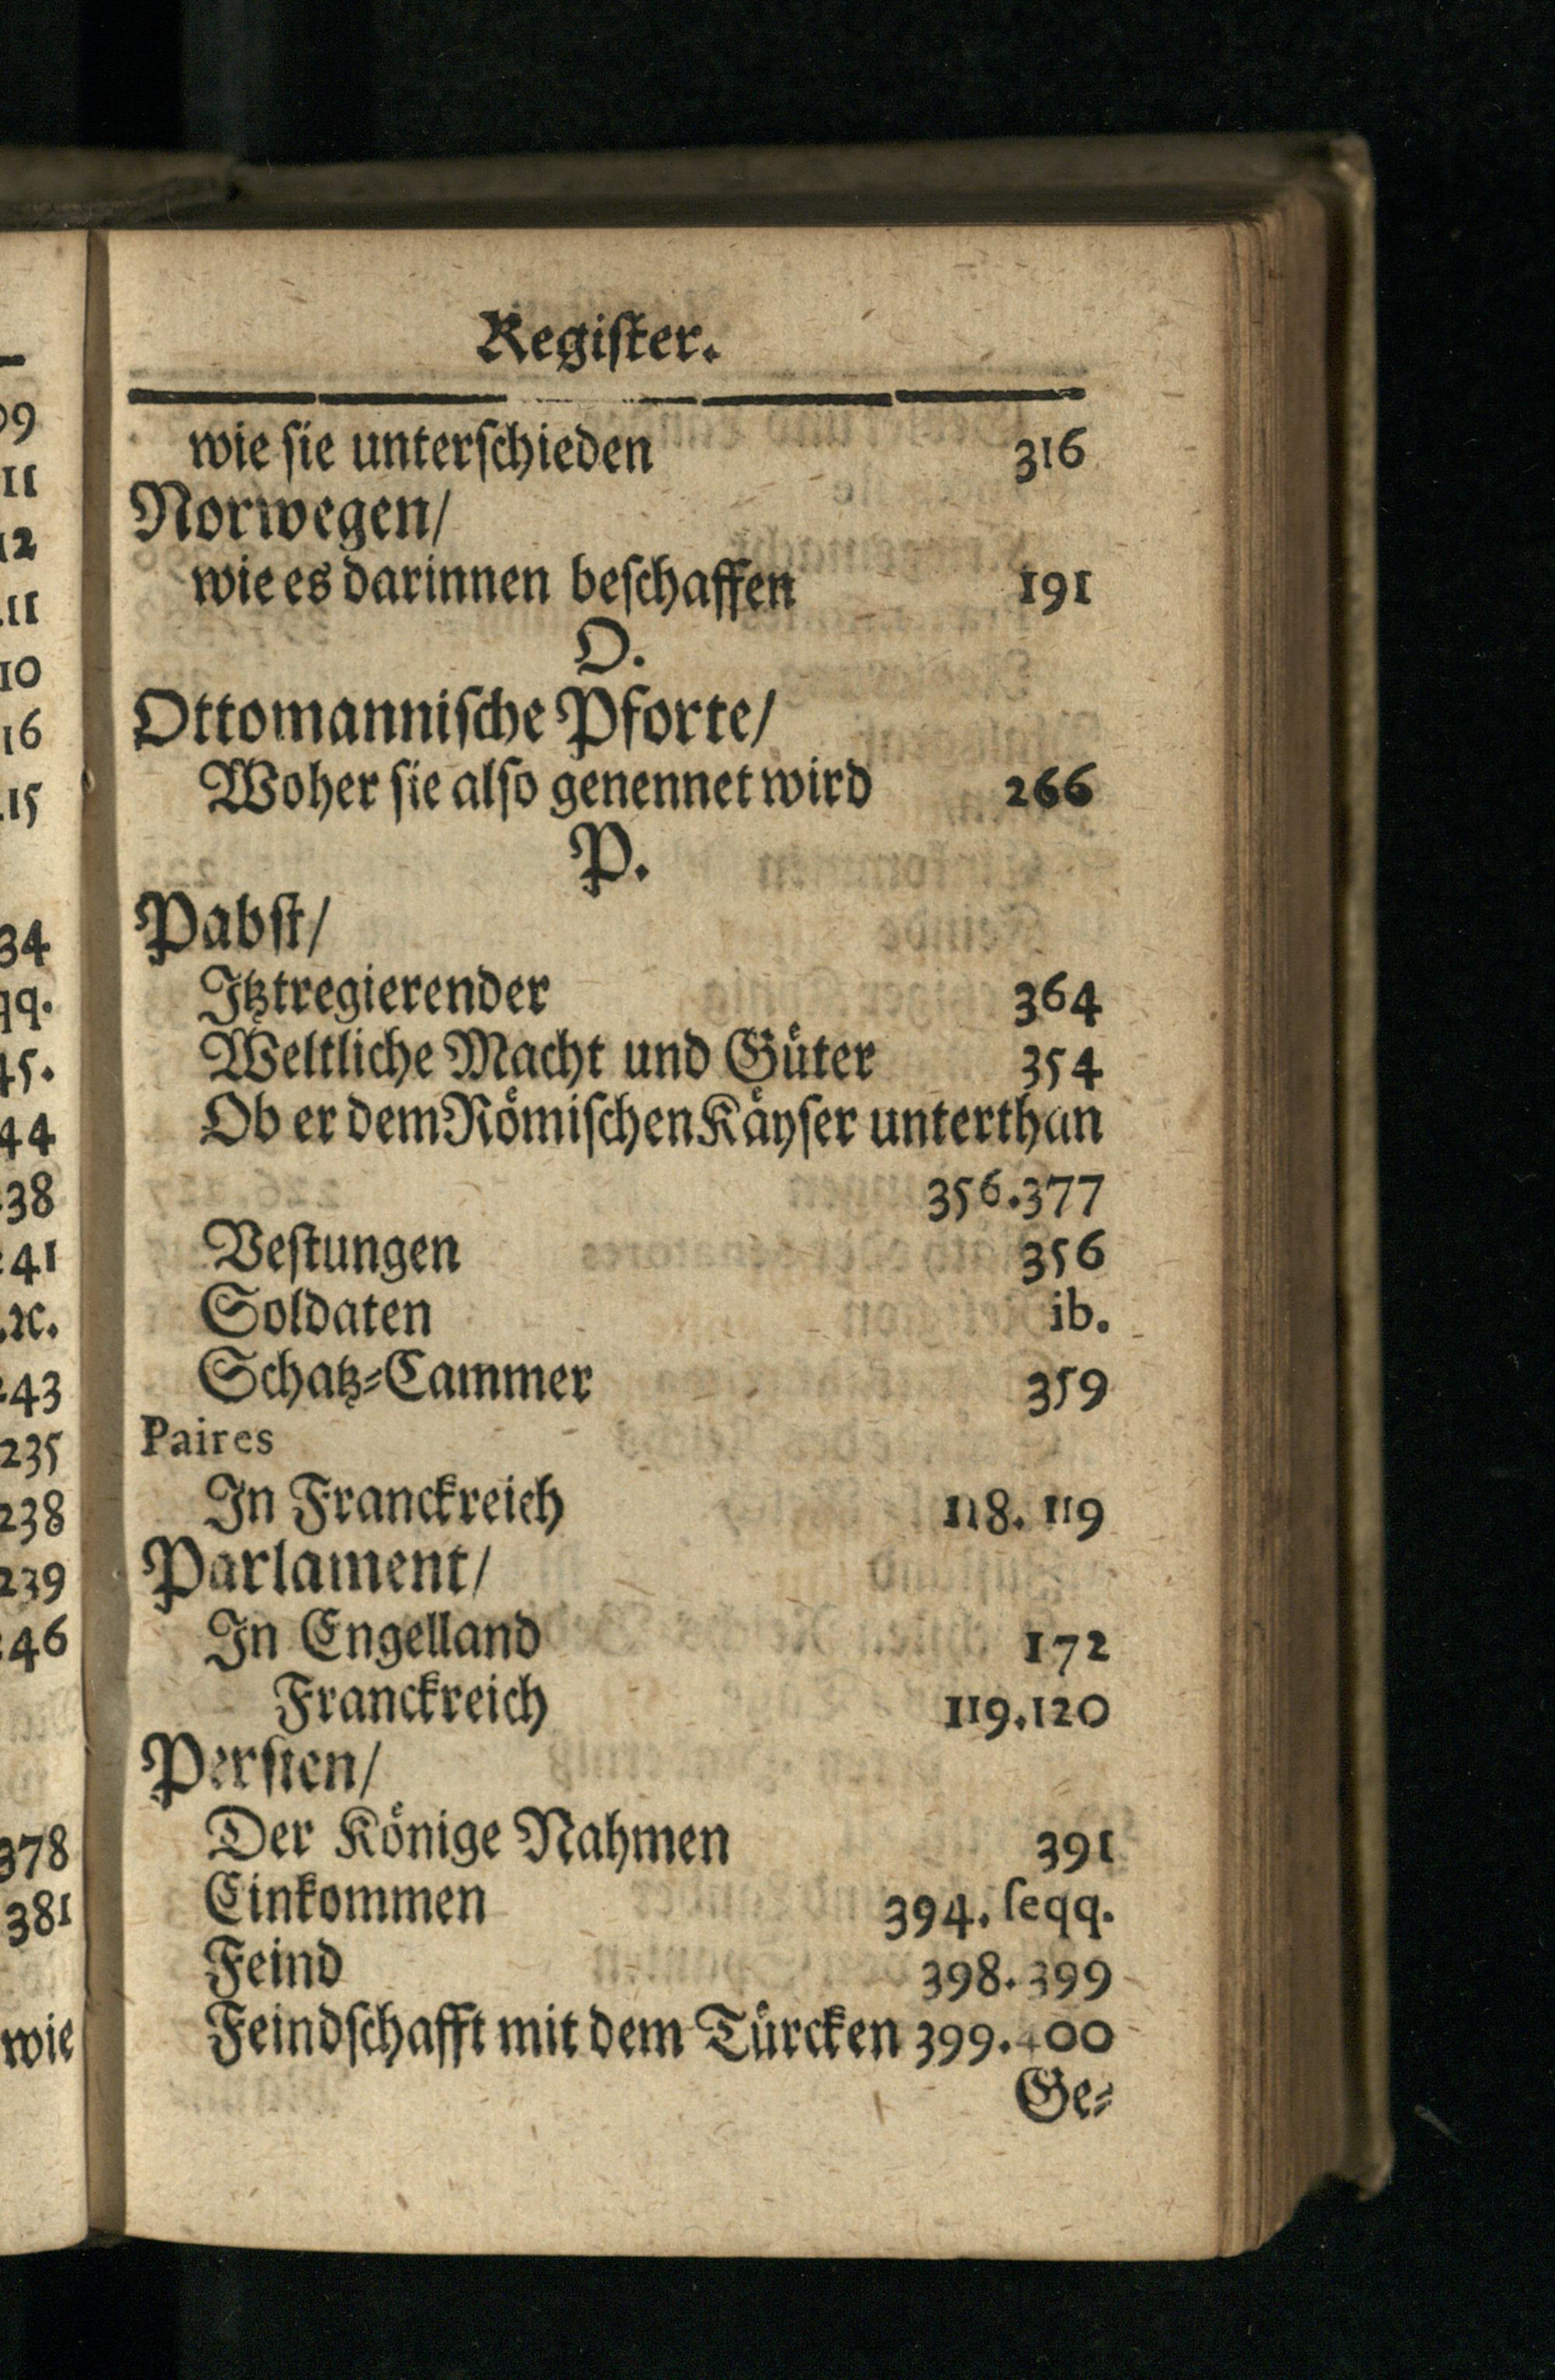 Regiſter.
wie ſie unterſchieden 316
Norwegen/
wie es darinnen beſchaffen 191
O.
Ottomanniſche Pforte/
Woher ſie alſo genennet wird 266
P.
Pabſt/
Itztregierender 364
Weltliche Macht und Guͤter 354
Ob er dem Roͤmiſchen Kaͤyſer unterthan
356.377
Veſtungen 356
Soldaten ib.
Schatz⸗Cammer 359
Paires
In Franckreich 118. 119
Parlament/
In Engelland 172
Franckreich 119.120
Perſien/
Der Koͤnige Nahmen 391
Einkommen 394. ſeqq.
Feind 398.399
Feindſchafft mit dem Tuͤrcken 399.400
Ge⸗